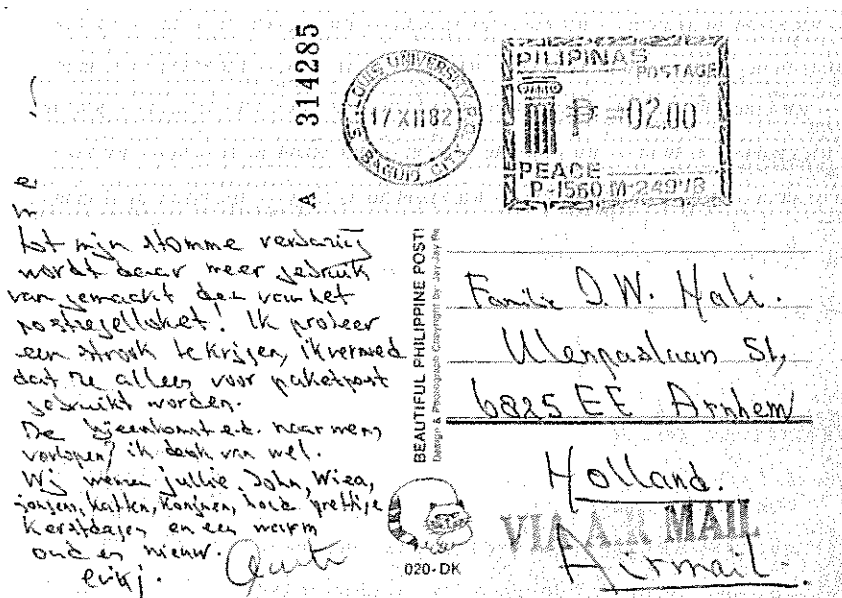 A 314285
ST. LOUIS UNIVERSITY P.O.
17 XII 82
BAGUIO CITY
PILIPINAS
POSTAGE
P =02.00
PEACE
P-1560 M-2497B
Tot mijn stomme verbazing
wordt daar meer gebruik
van gemaakt dan van het
postzegelloket! Ik probeer
een strook te krijgen, ik vermoed
dat ze alleen voor pakketpost
gebruikt worden.
De bijeenkomst e.d. naar wens
verlopen? ik denk van wel.
Wij wensen jullie, John, Wiea,
jongens, katten, konijnen, hele prettige
Kerstdagen en een warm
oud en nieuw.
BEAUTIFUL PHILIPPINE POST!
Design & Photograph Copyright by Jay-Jay
020-DK
Familie D.W. Hali.
51,
6825 EE Arnhem
Holland.
VIA AIR MAIL
Airmail.